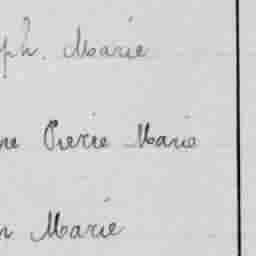 ph. Marie
ne Pierre Marie
n Marie